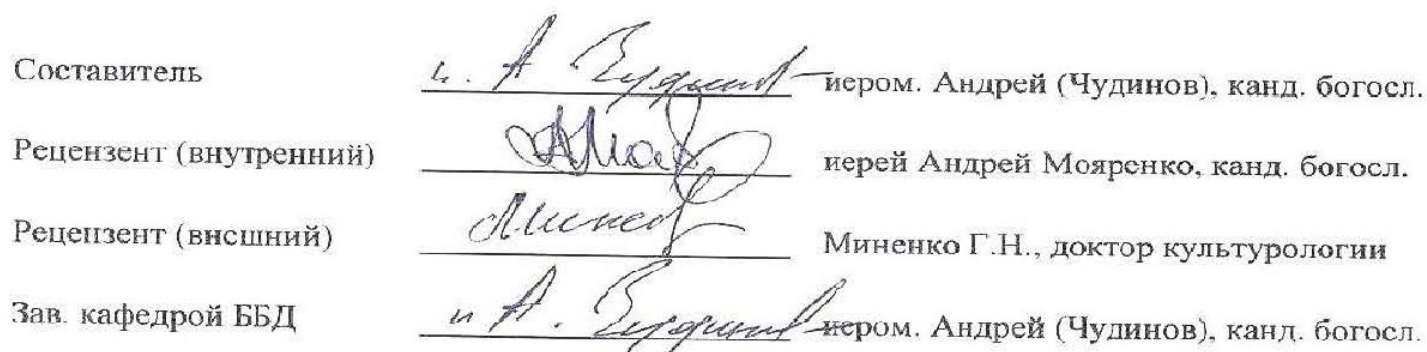 Составитель и. А Чудинов иером. Андрей (Чудинов), канд. богосл.
Рецензент (внутренний) АМоя иерей Андрей Мояренко, канд. богосл.
Рецензент (внешний) Миненко Миненко Г.Н., доктор культурологии
Зав. кафедрой ББД и А. Чудинов иером. Андрей (Чудинов), канд. богосл.